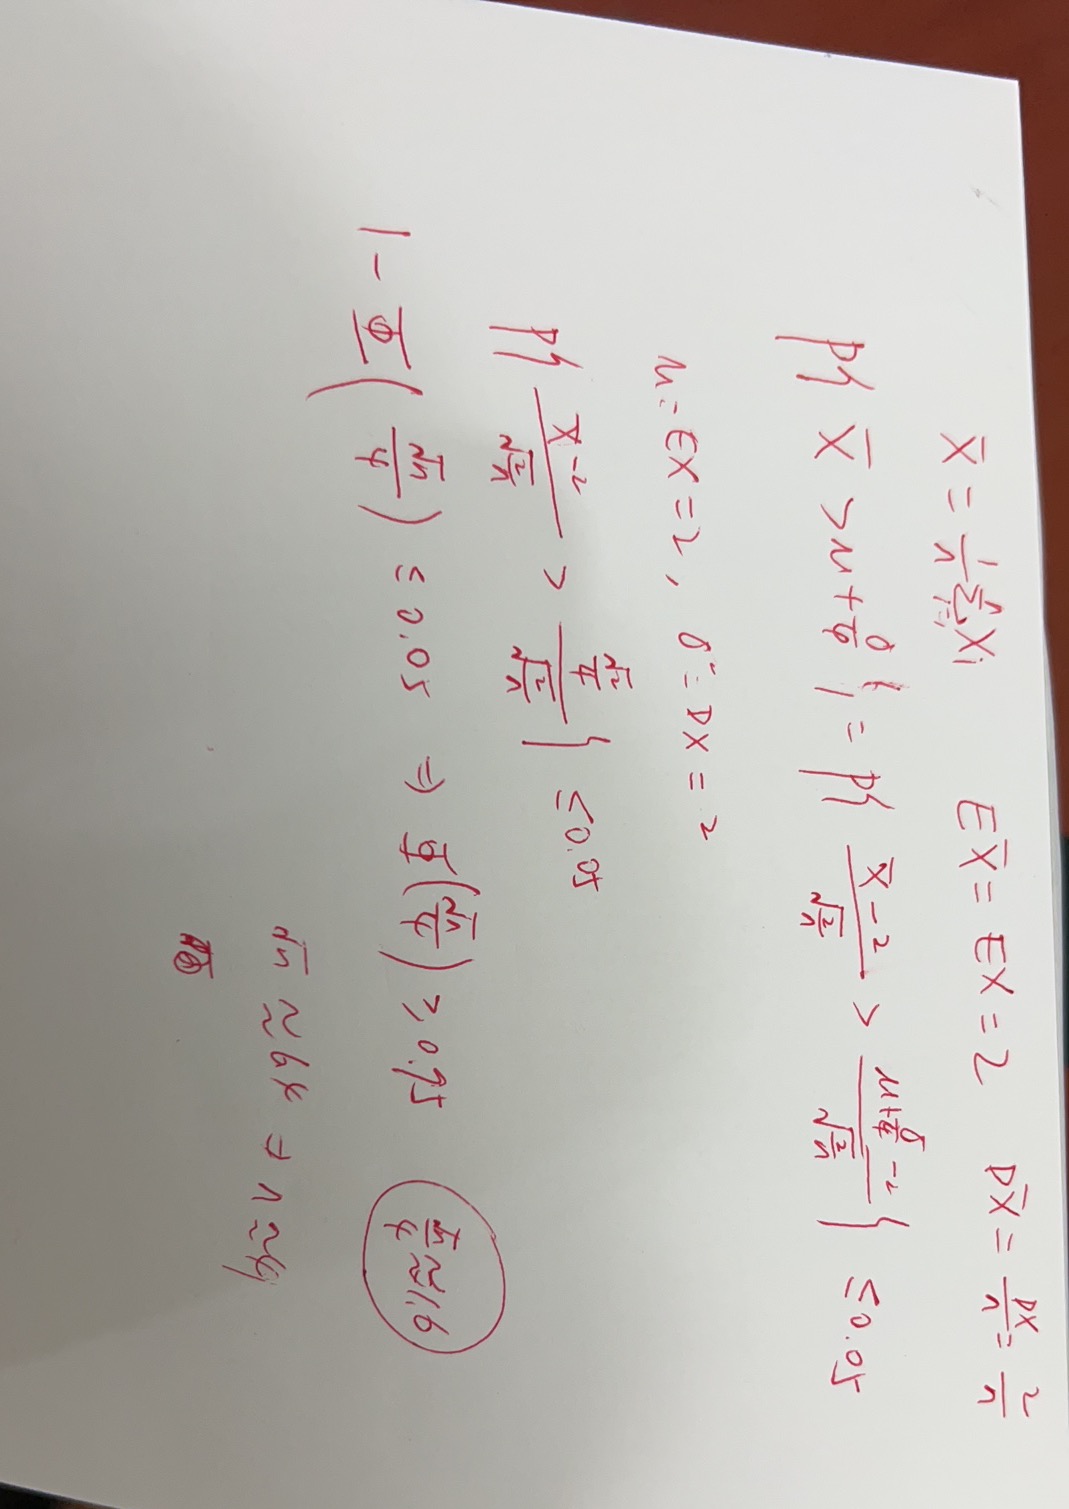 X̄ = 1/n Σᵢ₌₁ⁿ Xᵢ   EX̄ = EX = 2   DX̄ = DX/n = 2/n
P{ X̄ > μ + σ/4 } = P{ (X̄ - 2)/√(2/n) > (μ + σ/4 - 2)/√(2/n) } ≤ 0.05
μ = EX = 2, σ² = DX = 2
P{ (X̄ - 2)/√(2/n) > (√2/4)/√(2/n) } ≤ 0.05
1 - Φ(√n/4) ≤ 0.05 ⇒ Φ(√n/4) ≥ 0.95   √n/4 ≈ 1.6
√n ≈ 6.4 ⇒ n ≈ 41